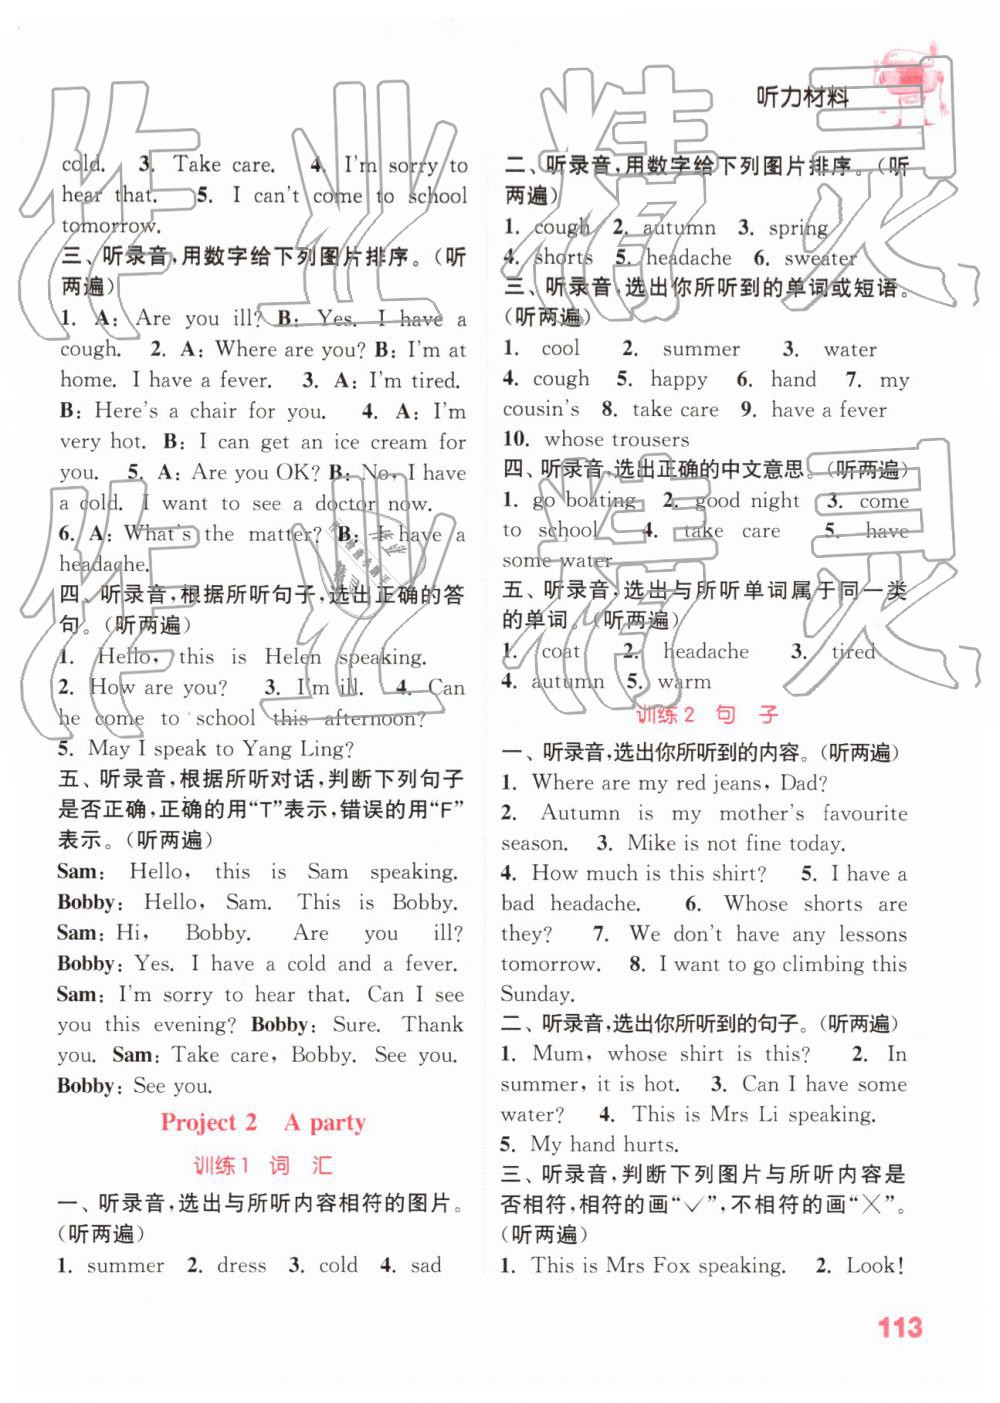 听力材料
cold. 3. Take care. 4. I'm sorry to
hear that. 5. I can't come to school
tomorrow.
三、听录音,用数字给下列图片排序。(听
两遍)
1. A: Are you ill? B: Yes. I have a
cough. 2. A: Where are you? B: I'm at
home. I have a fever. 3. A: I'm tired.
B: Here's a chair for you. 4. A: I'm
very hot. B: I can get an ice cream for
you. 5. A: Are you OK? B: No, I have
a cold. I want to see a doctor now.
6. A: What's the matter? B: I have a
headache.
四、听录音,根据所听句子,选出正确的答
句。(听两遍)
1. Hello, this is Helen speaking.
2. How are you? 3. I'm ill. 4. Can
he come to school this afternoon?
5. May I speak to Yang Ling?
五、听录音,根据所听对话,判断下列句子
是否正确,正确的用“T”表示,错误的用“F”
表示。(听两遍)
Sam: Hello, this is Sam speaking.
Bobby: Hello, Sam. This is Bobby.
Sam: Hi, Bobby. Are you ill?
Bobby: Yes. I have a cold and a fever.
Sam: I'm sorry to hear that. Can I see
you this evening? Bobby: Sure. Thank
you. Sam: Take care, Bobby. See you.
Bobby: See you.
Project 2 A party
训练1 词 汇
一、听录音,选出与所听内容相符的图片。
(听两遍)
1. summer 2. dress 3. cold 4. sad
二、听录音,用数字给下列图片排序。(听
两遍)
1. cough 2. autumn 3. spring
4. shorts 5. headache 6. sweater
三、听录音,选出你所听到的单词或短语。
(听两遍)
1. cool 2. summer 3. water
4. cough 5. happy 6. hand 7. my
cousin's 8. take care 9. have a fever
10. whose trousers
四、听录音,选出正确的中文意思。(听两遍)
1. go boating 2. good night 3. come
to school 4. take care 5. have
some water
五、听录音,选出与所听单词属于同一类
的单词。(听两遍)
1. coat 2. headache 3. tired
4. autumn 5. warm
训练2 句 子
一、听录音,选出你所听到的内容。(听两遍)
1. Where are my red jeans, Dad?
2. Autumn is my mother's favourite
season. 3. Mike is not fine today.
4. How much is this shirt? 5. I have a
bad headache. 6. Whose shorts are
they? 7. We don't have any lessons
tomorrow. 8. I want to go climbing this
Sunday.
二、听录音,选出你所听到的句子。(听两遍)
1. Mum, whose shirt is this? 2. In
summer, it is hot. 3. Can I have some
water? 4. This is Mrs Li speaking.
5. My hand hurts.
三、听录音,判断下列图片与所听内容是
否相符,相符的画“✓”,不相符的画“╳”。
(听两遍)
1. This is Mrs Fox speaking. 2. Look!
113
作业精灵
作业精灵